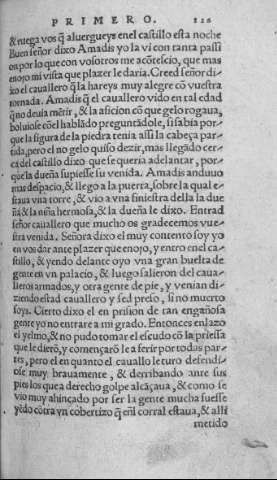 PRIMERO. 126
& ruega vos q̃ aluergueys enel castillo esta noche
Buen señor dixo Amadis yo la vi con tanta passi
on por lo que con vosotros me acõtescio, que mas
enojo mi vista que plazer le daria. Creed señor di-
xo el cauallero q̃ la hareys muy alegre cõ vuestra
tornada. Amadis q̃ el cauallero vido en tal edad
q̃ no deuia mẽtir, & la aficion cõ que gelo rogaua,
boluiose cõ el hablãdo preguntãdole, si sabia por-
que la figura de la piedra tenia assi la cabeça par-
tida, pero el no gelo quiso dezir, mas llegãdo cer-
ca del castillo dixo que se queria adelantar, por-
que la dueña supiesse su venida. Amadis anduuo
mas despacio, & llego a la puerta, sobre la qual e-
staua vna torre, & vio a vna finiestra della la due
ña & la niña hermosa, & la dueña le dixo. Entrad
señor cauallero que mucho os gradecemos vue-
stra venida. Señora dixo el muy contento soy yo
en vos dar ante plazer que enojo, y entro enel ca-
stillo, & yendo delante oyo vna gran buelta de
gente en vn palacio, & luego salieron del caua-
lleros armados, y otra gente de pie, y venian di-
ziendo estad cauallero y sed preso, si no muerto
soys. Cierto dixo el en prision de tan engañosa
gente yo no entrare a mi grado. Entonces enlazo
el yelmo, & no pudo tomar el escudo cõ la priessa
que le dierõ, y començarõ le a ferir por todas par-
tes, pero el en quanto el cauallo le turo defendi-
ose muy brauamente, & derribando ante sus
pies los que a derecho golpe alcãçaua, & como se
vio muy ahincado por ser la gente mucha fuesse
yẽdo cõtra vn cobertizo q̃ enl corral estaua, & alli
metido